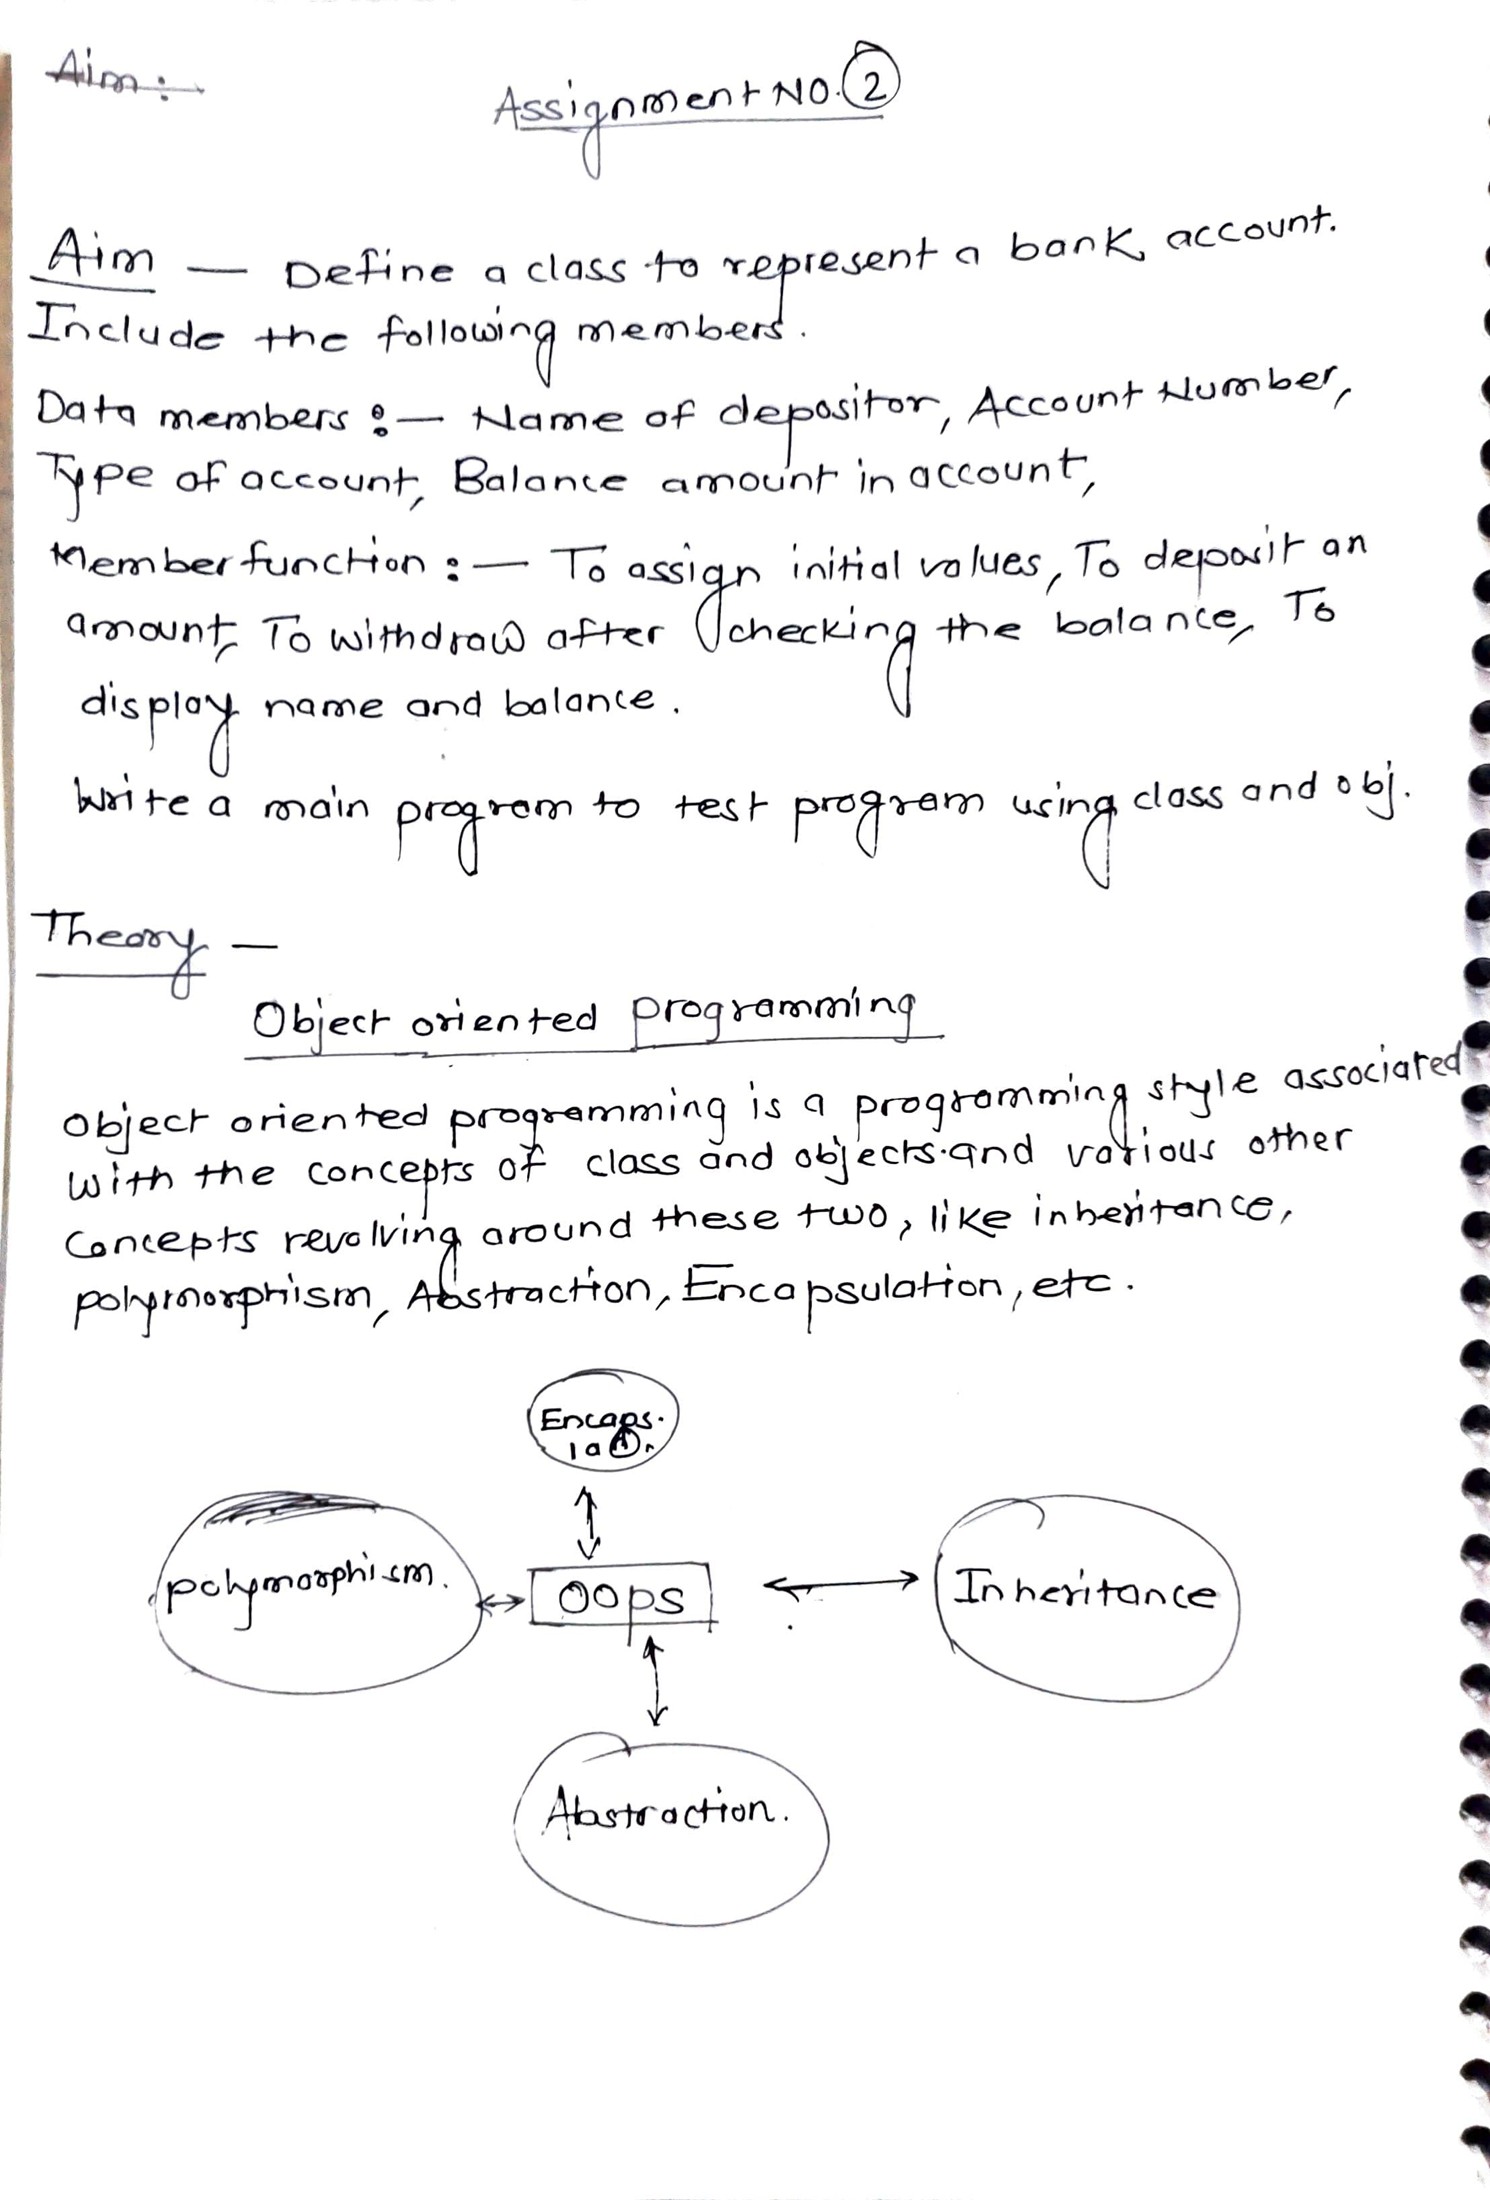 Aim :-
Assignment NO. 2
Aim — Define a class to represent a bank account.
Include the following members.
Data members :— Name of depositor, Account Number,
Type of account, Balance amount in account,
Member function :— To assign initial values, To deposit an
amount, To withdraw after checking the balance, To
display name and balance.
Write a main program to test program using class and obj.
Theory —
Object oriented programming
Object oriented programming is a programming style associated
with the concepts of class and objects and various other
concepts revolving around these two, like inheritance,
polymorphism, Abstraction, Encapsulation, etc.
Encaps.
polymorphism.
OOPS
Inheritance
Abstraction.